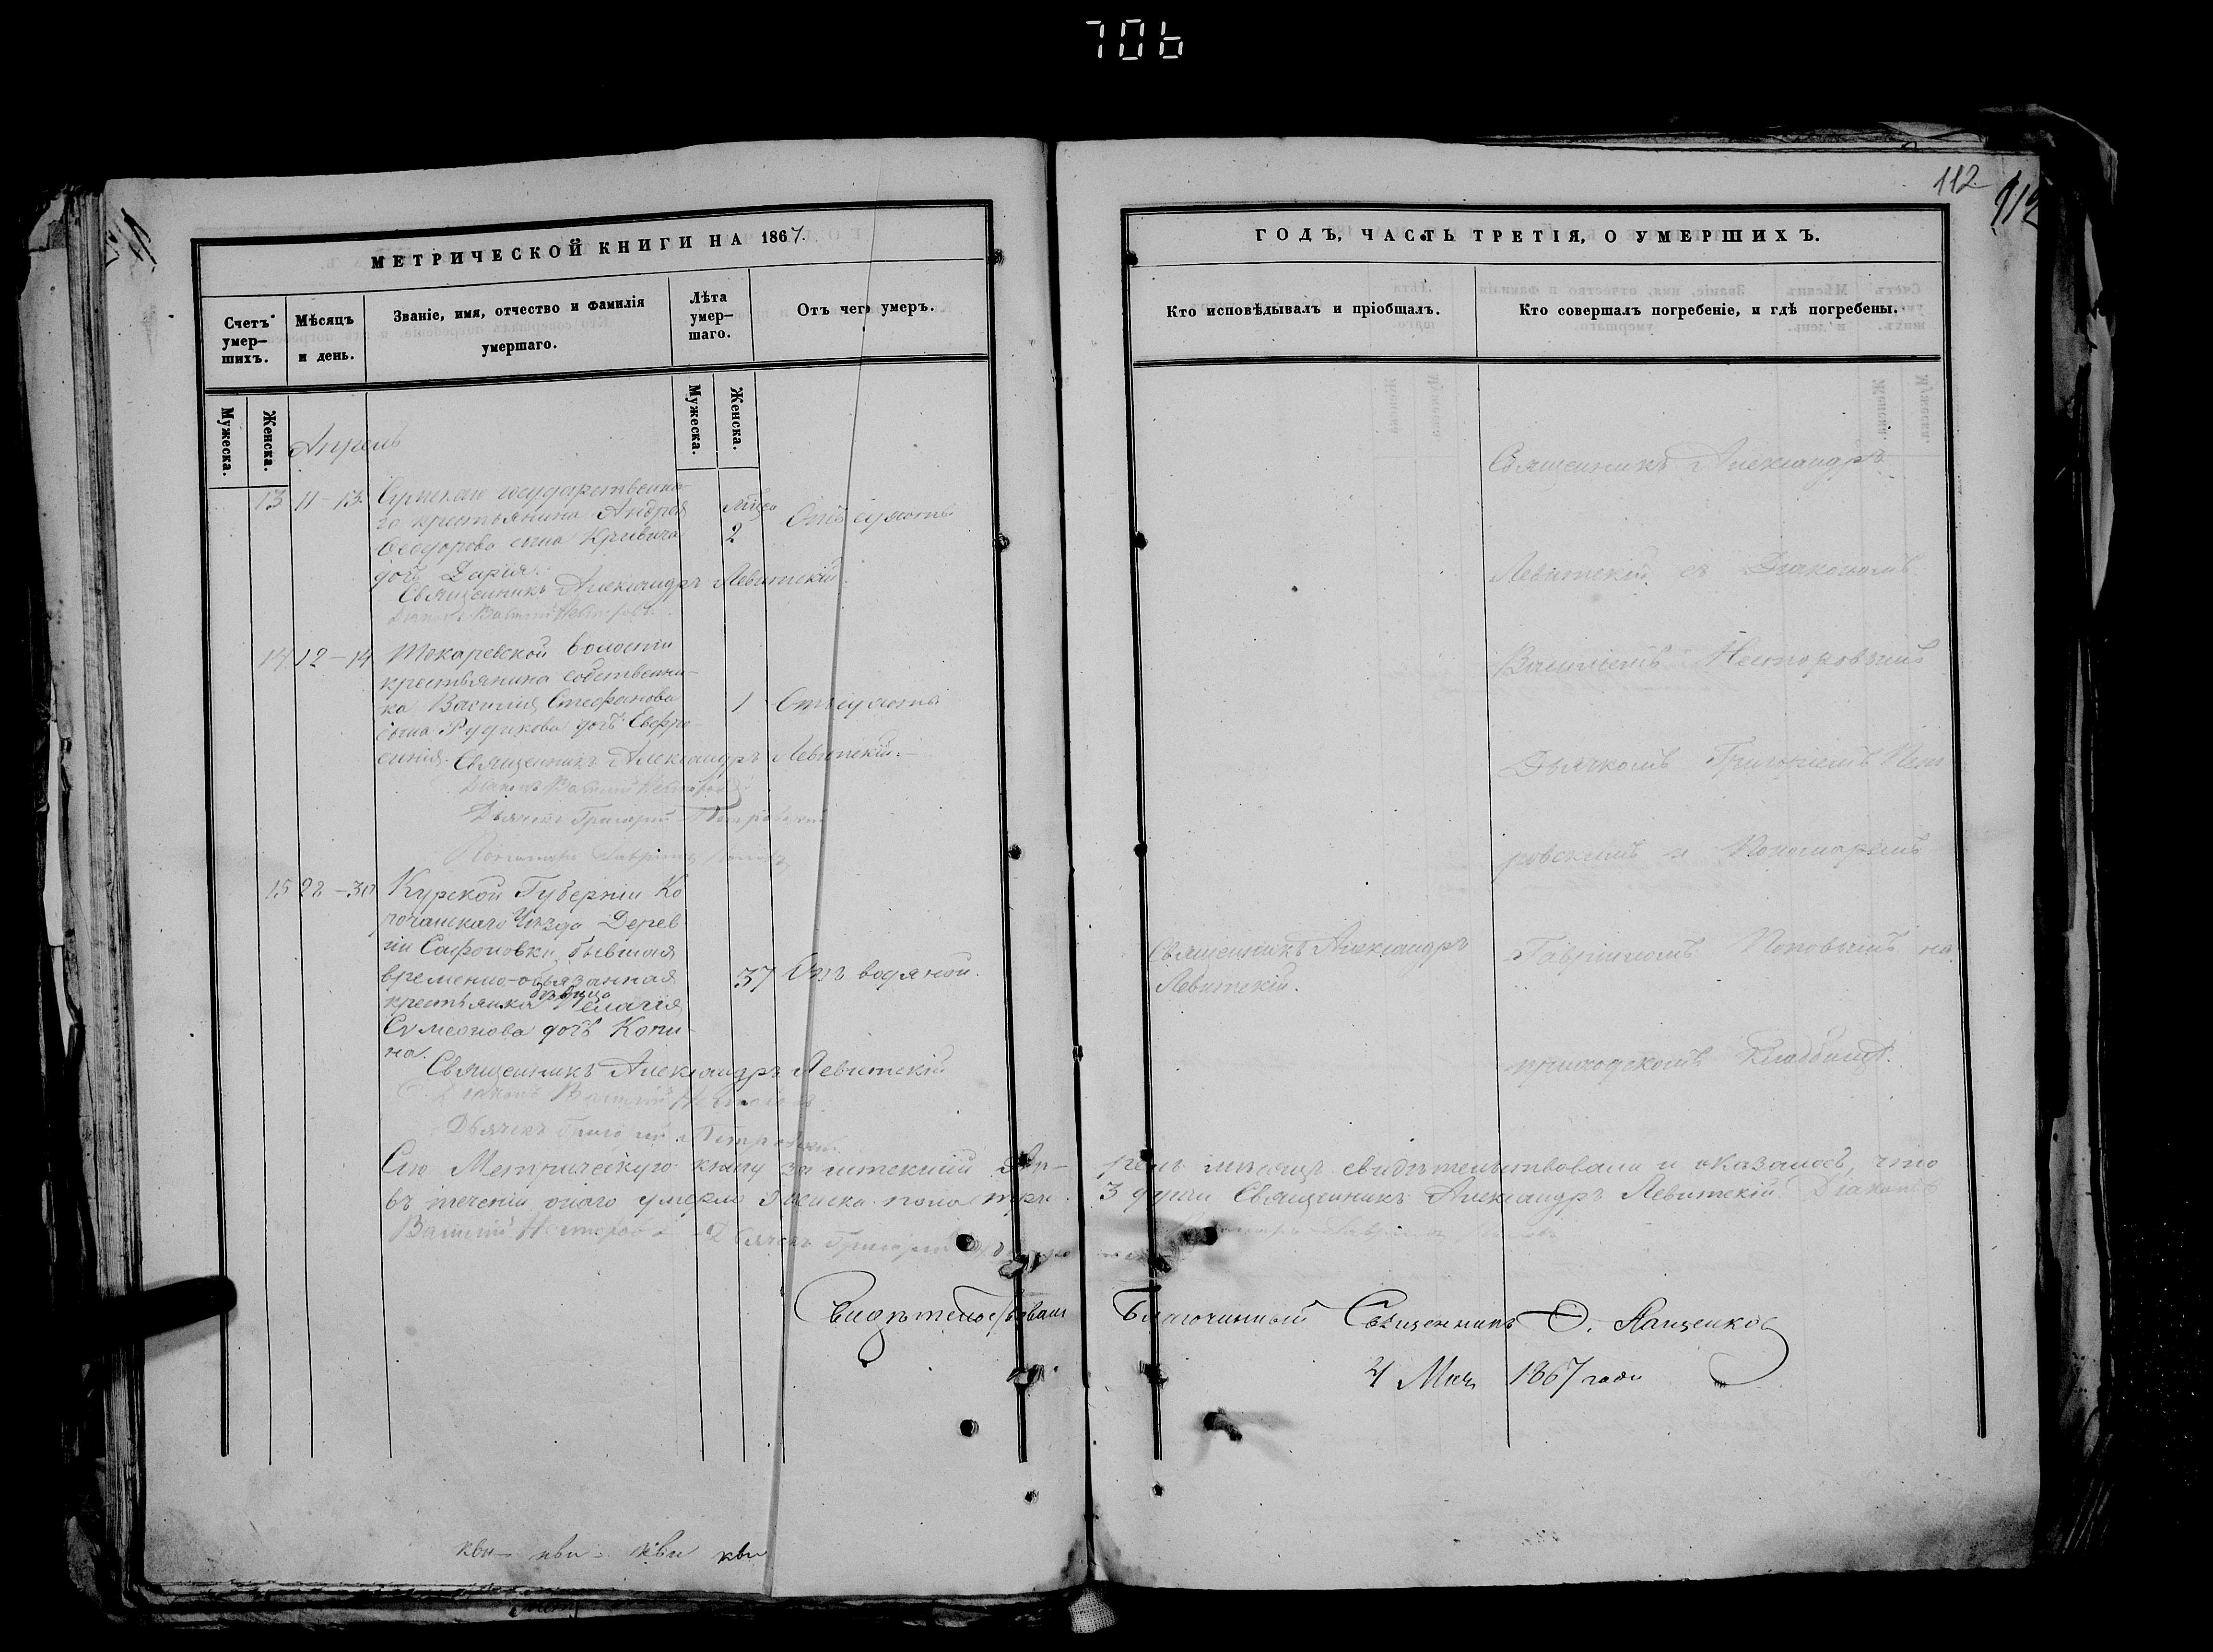 706
112
112
МЕТРИЧЕСКОЙ КНИГИ НА 1867.
Счетъ умер-шихъ.
Мѣсяцъ и день.
Званіе, имя, отчество и фамилія умершаго.
Лѣта умер-шаго.
Отъ чего умеръ.
Мужеска.
Женска.
Мужеска.
Женска.
Апрель
13 11-13 Сумскаго государственна-
го крестьянина Андрея лѣта Отъ сухоты
Ѳеодорова сына Кривича 2
дочь Дарія.
Священникъ Александръ Левитскій.
Діаконъ Василій Несторовъ
14 12-14 Токаревской волости
крестьянина собственни-
ка Василія Стефанова 1 Отъ сухоты
сына Рудикова дочь Евфро-
синія. Священникъ Александръ Левитскій.
Діаконъ Василій Несторовъ
Дьячекъ Григорій Петровскій
Пономарь Гавріилъ Поповъ
15 28-30 Курской Губерніи Ко
рочанскаго Уѣзда Дерев
ни Сафоновки бывшая
временно-обязанная 37 Отъ водяной.
крестьянка девица Пелагія
Симеонова дочь Копи-
на.
Священникъ Александръ Левитскій
Діаконъ Василій Несторовъ
Дьячекъ Григорій Петровскій
Сію Метрическую книгу за истекший Ап-
въ теченіи онаго умерло женска пола три.
Василій Несторовъ Дьячекъ Григорій
Свидѣтельствовалъ
кви- кви- кви кви
ГОДЪ, ЧАСТЬ ТРЕТІЯ, О УМЕРШИХЪ.
Кто исповѣдывалъ и пріобщалъ.
Кто совершалъ погребеніе, и гдѣ погребены.
Священникъ Александръ
Левитскій съ Діакономъ
Василіемъ Несторовымъ
Дьячкомъ Григоріемъ Пет
ровскимъ и Пономаремъ
Священникъ Александръ
Левитскій.
Гавріиломъ Поповымъ на
приходскомъ Кладбищѣ.
рель мѣсяцъ свидѣтельствовали и оказалось, что
3 души Священникъ Александръ Левитскій Діаконъ
Пономарь Гавріилъ Поповъ
Благочинный Священникъ
4 Мая 1867 года